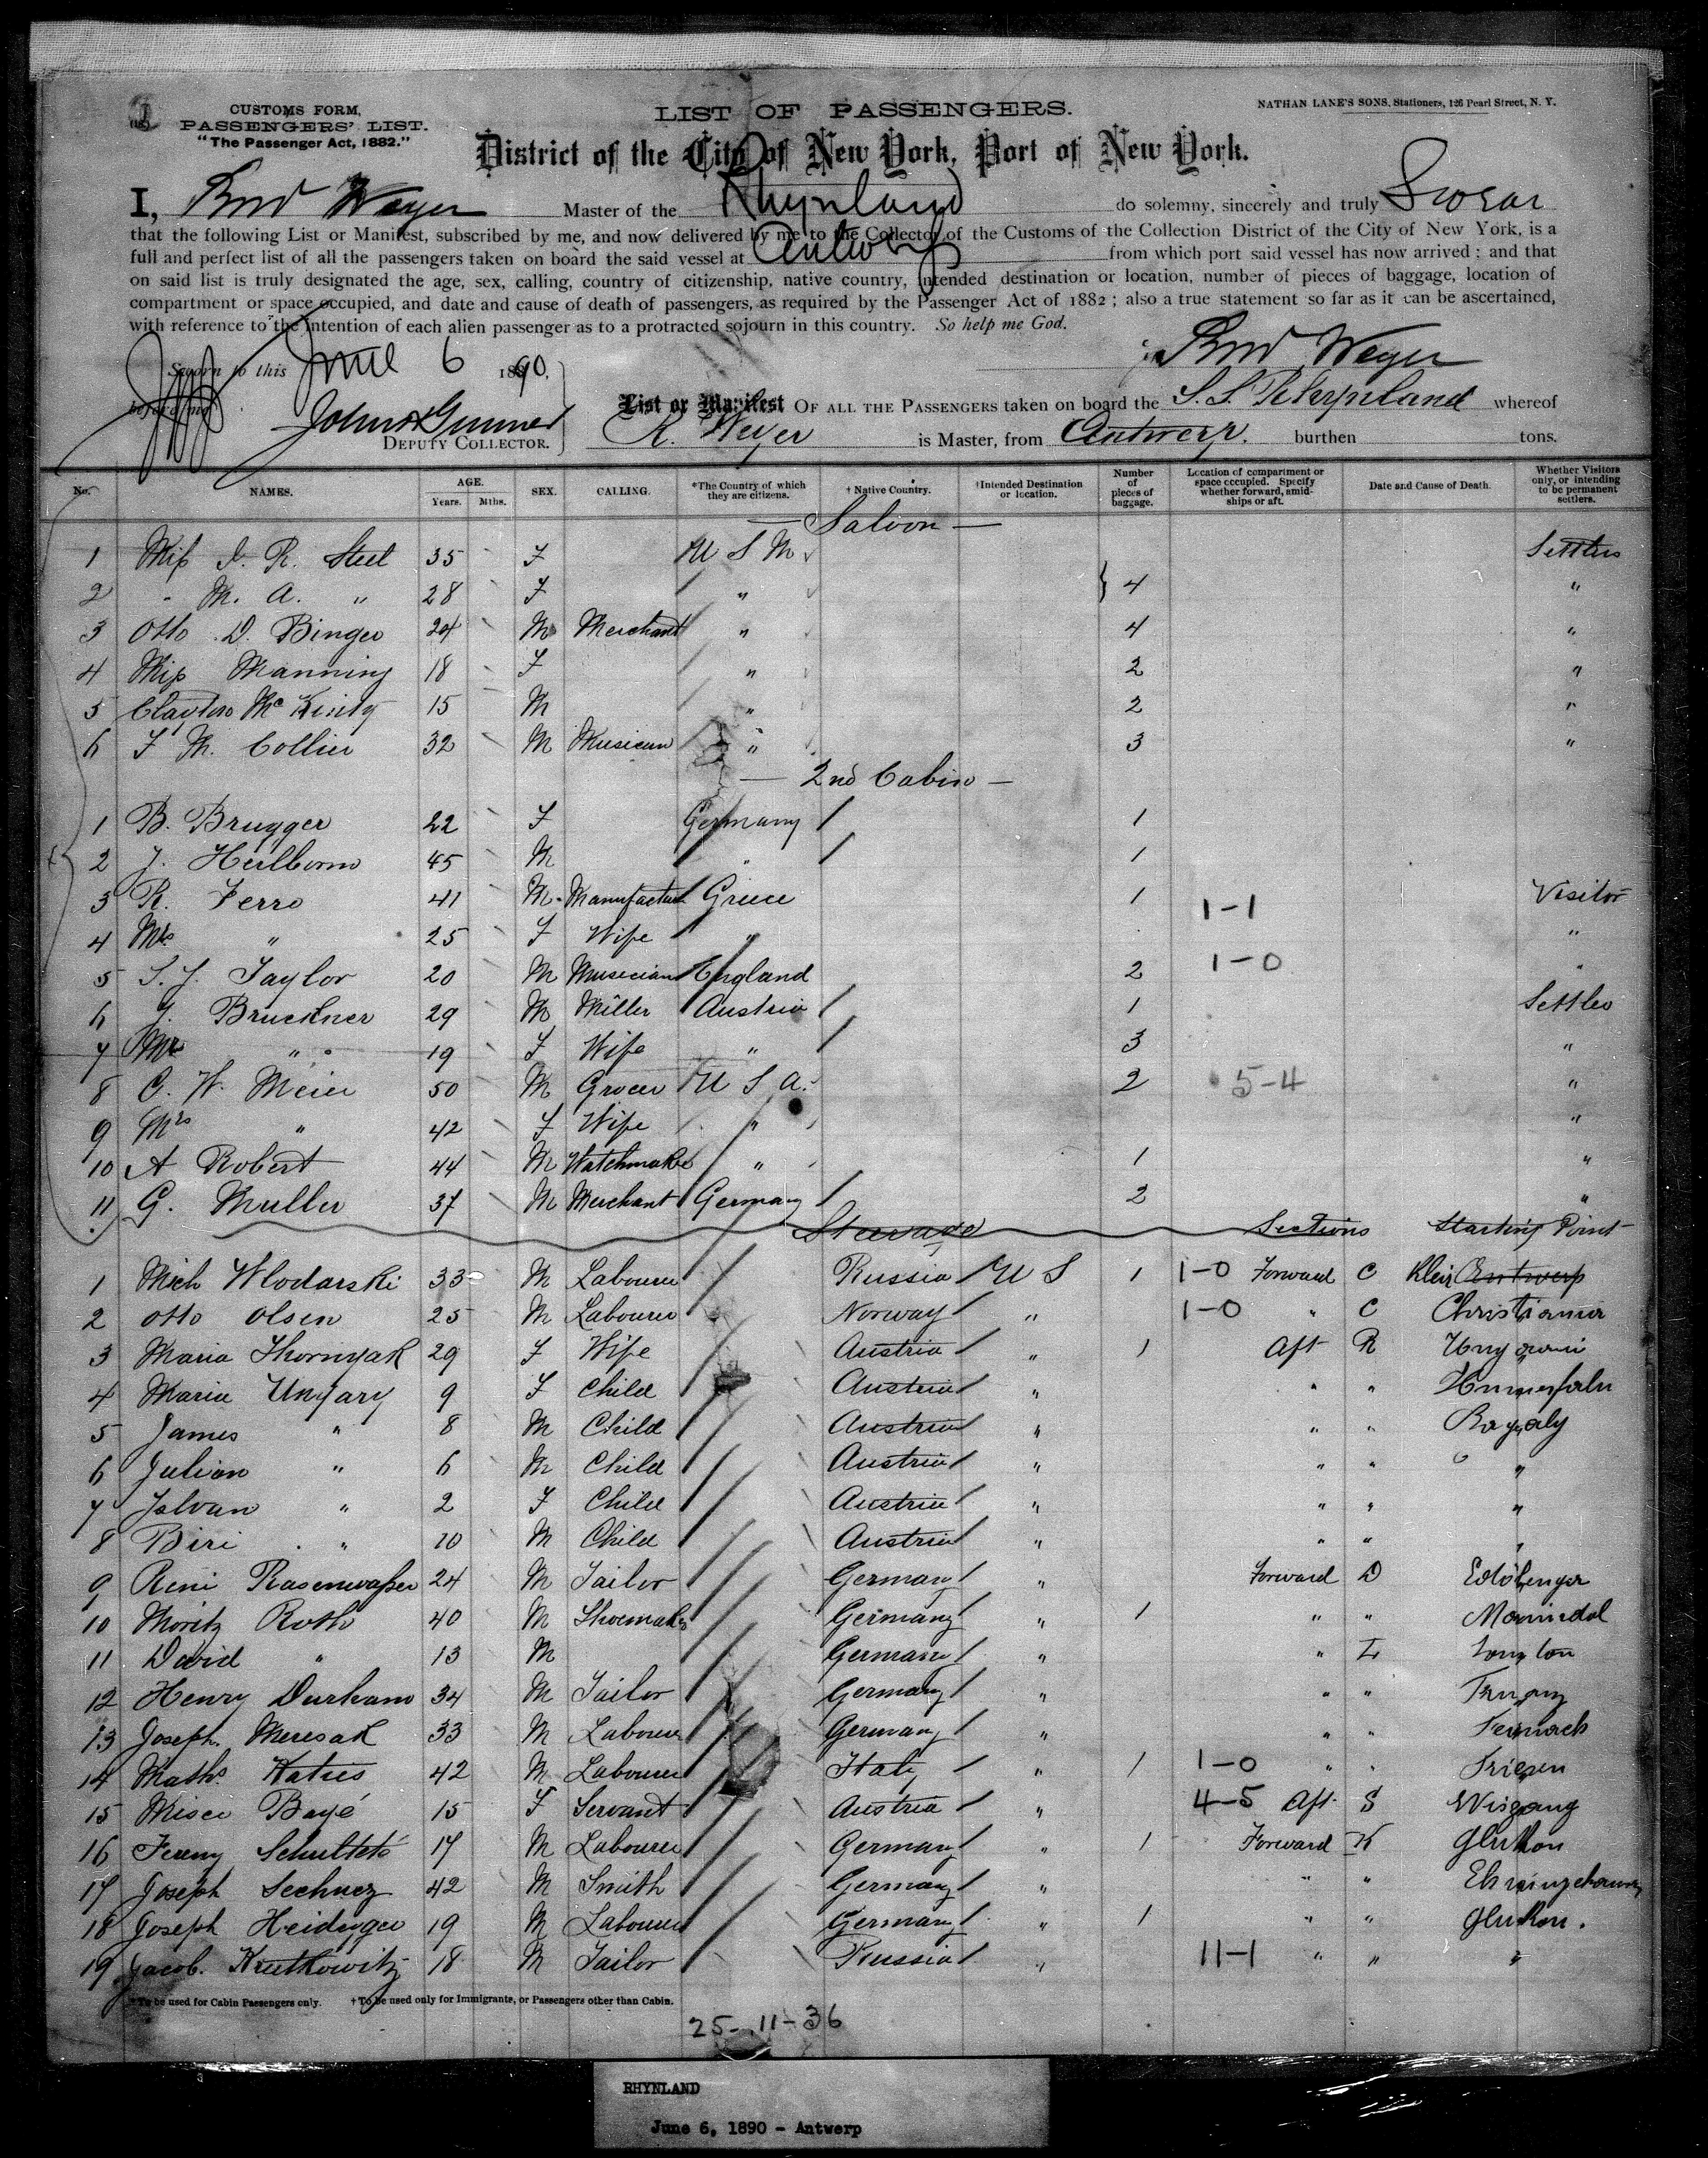 CUSTOMS FORM,
PASSENGERS' LIST.
"The Passenger Act, 1882."
LIST OF PASSENGERS.
NATHAN LANE'S SONS, Stationers, 126 Pearl Street, N. Y.
District of the City of New York, Port of New York.
I, Weyer Master of the Rhynland do solemny, sincerely and truly Swear
that the following List or Manifest, subscribed by me, and now delivered by me to the Collector of the Customs of the Collection District of the City of New York, is a
full and perfect list of all the passengers taken on board the said vessel at Antwerp from which port said vessel has now arrived; and that
on said list is truly designated the age, sex, calling, country of citizenship, native country, intended destination or location, number of pieces of baggage, location of
compartment or space occupied, and date and cause of death of passengers, as required by the Passenger Act of 1882; also a true statement so far as it can be ascertained,
with reference to the intention of each alien passenger as to a protracted sojourn in this country. So help me God.
Weyer
Sworn to this June 6 1890,
before me
DEPUTY COLLECTOR.
List or Manifest OF ALL THE PASSENGERS taken on board the S.S. Rhynland whereof
R. Weyer is Master, from Antwerp. burthen tons.
No. NAMES. AGE. Years. Mths. SEX. CALLING. *The Country of which they are citizens. †Native Country. †Intended Destination or location. Number of pieces of baggage. Location of compartment or space occupied. Specify whether forward, amidships or aft. Date and Cause of Death. Whether Visitors only, or intending to be permanent settlers.
— Saloon —
1 Miss R. Steel 35 F U S Settlers
2 " M. A. " 28 F " } 4 "
3 Otto D. Binger 24 M Merchant " 4 "
4 Miss Manning 18 F " 2 "
5 15 M " 2 "
6 F M. Collier 32 M Musician " 3 "
— 2nd Cabin —
1 B. Brugger 22 F Germany 1
2 J. Heilborn 45 M " 1
3 R. Ferro 41 M Manufacturer Greece 1 1-1 Visitor
4 Mrs " 25 F Wife " "
5 S. J. Taylor 20 M Musician England 2 1-0 "
6 J. Bruckner 29 M Miller Austria 1 Settler
7 Mrs " 19 F Wife " 3 "
8 C. W. Meier 50 M Grocer U S A. 2 5-4 "
9 Mrs " 42 F Wife " "
10 A Robert 44 M Watchmaker " 1 "
11 G. Muller 37 M Merchant Germany 2 "
Steerage Sections Starting Point
1 Mich Wlodarski 33 M Labourer Russia U S 1 1-0 Forward C Antwerp
2 Otto Olsen 25 M Labourer Norway " 1-0 " C Christiania
3 Maria Thornyak 29 F Wife Austria " 1 Aft R
4 Maria Ungary 9 F Child Austria " " "
5 James " 8 M Child Austria " " "
6 Julian " 6 M Child Austria " " " "
7 " 2 F Child Austria " " " "
8 Biri " 10 M Child Austria " " " "
9 Reni Rasenwasser 24 M Tailor Germany " Forward D
10 Moritz Roth 40 M Shoemaker Germany " 1 " "
11 David " 13 M Germany " " L
12 Henry Durham 34 M Tailor Germany " " "
13 Joseph Meresak 33 M Labourer Germany " " "
14 Maths. 42 M Labourer Italy " 1 1-0 " " Friesen
15 15 F Servant Austria " 4-5 Aft S
16 17 M Labourer Germany " 1 Forward K
17 Joseph 42 M Smith Germany " " "
18 Joseph Heidegger 19 M Labourer Germany " 1 " "
19 Jacob. Krutkowitz 18 M Tailor Russia " 11-1 " " "
*To be used for Cabin Passengers only. †To be used only for Immigrants, or Passengers other than Cabin.
25-11-36
RHYNLAND
June 6, 1890 - Antwerp